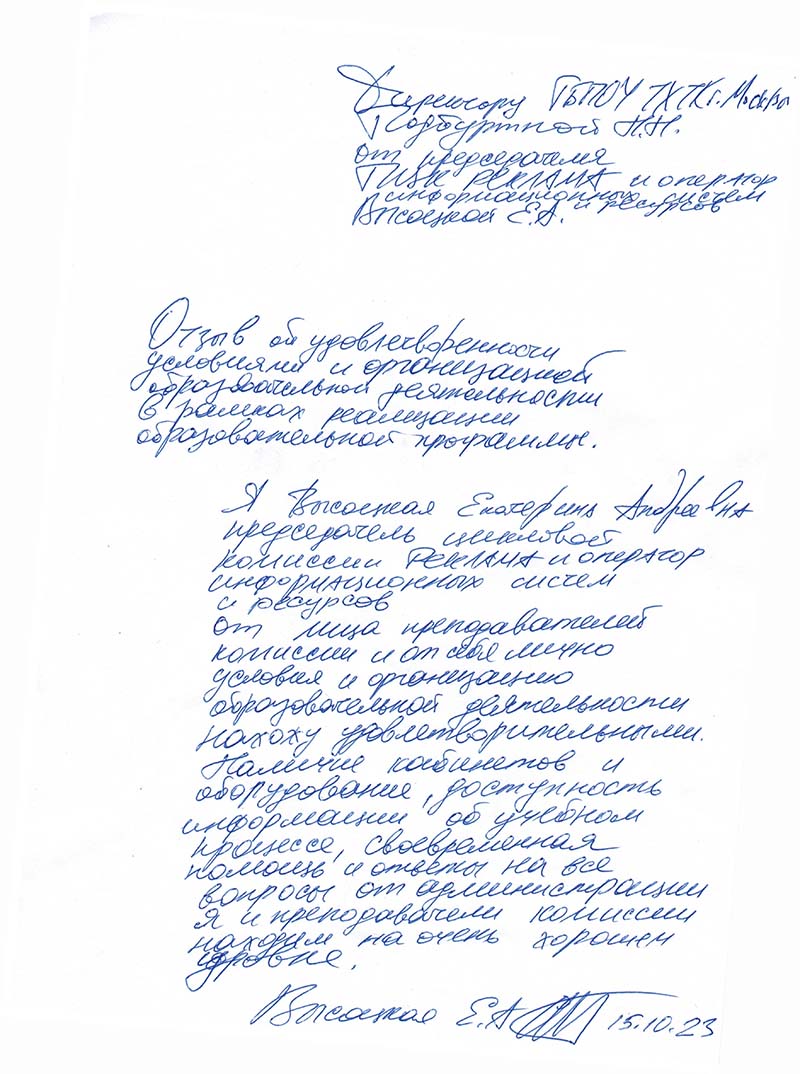 Директору ГБПОУ ТХТК г. Москвы
Подбуртной Н.Н.
от председателя
ПЦК РЕКЛАМА и оператор
информационных систем
и ресурсов
Высоцкой Е.А.
Отзыв об удовлетворенности
условиями и организацией
образовательной деятельности
в рамках реализации
образовательной программы.
Я Высоцкая Екатерина Андреевна
председатель цикловой
комиссии РЕКЛАМА и оператор
информационных систем
и ресурсов
от лица преподавателей
комиссии и от себя лично
условия и организацию
образовательной деятельности
нахожу удовлетворительными.
Наличие кабинетов и
оборудование, доступность
информации об учебном
процессе, своевременная
помощь и ответы на все
вопросы от администрации
я и преподаватели комиссии
находим на очень хорошем
уровне.
Высоцкая Е.А 15.10.23